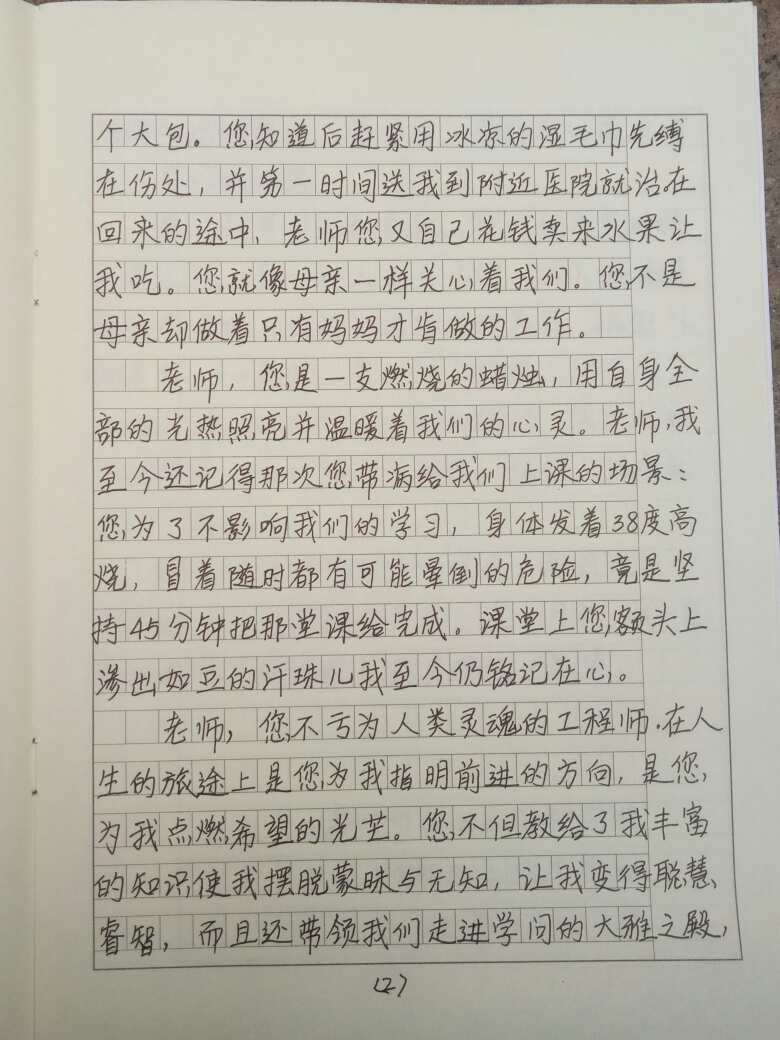 个大包。您知道后赶紧用冰凉的湿毛巾先缚
在伤处，并第一时间送我到附近医院就治.在
回来的途中，老师您又自己花钱卖来水果让
我吃。您就像母亲一样关心着我们。您不是
母亲却做着只有妈妈才肯做的工作。
老师，您是一支燃烧的蜡烛，用自身全
部的光热照亮并温暖着我们的心灵。老师，我
至今还记得那次您带病给我们上课的场景：
您为了不影响我们的学习，身体发着38度高
烧，冒着随时都有可能晕倒的危险，竟是坚
持45分钟把那堂课给完成。课堂上您额头上
渗出如豆的汗珠儿我至今仍铭记在心。
老师，您不亏为人类灵魂的工程师.在人
生的旅途上是您为我指明前进的方向，是您
为我点燃希望的光芒。您不但教给了我丰富
的知识使我摆脱蒙昧与无知，让我变得聪慧、
睿智，而且还带领我们走进学问的大雅之殿，
(2)